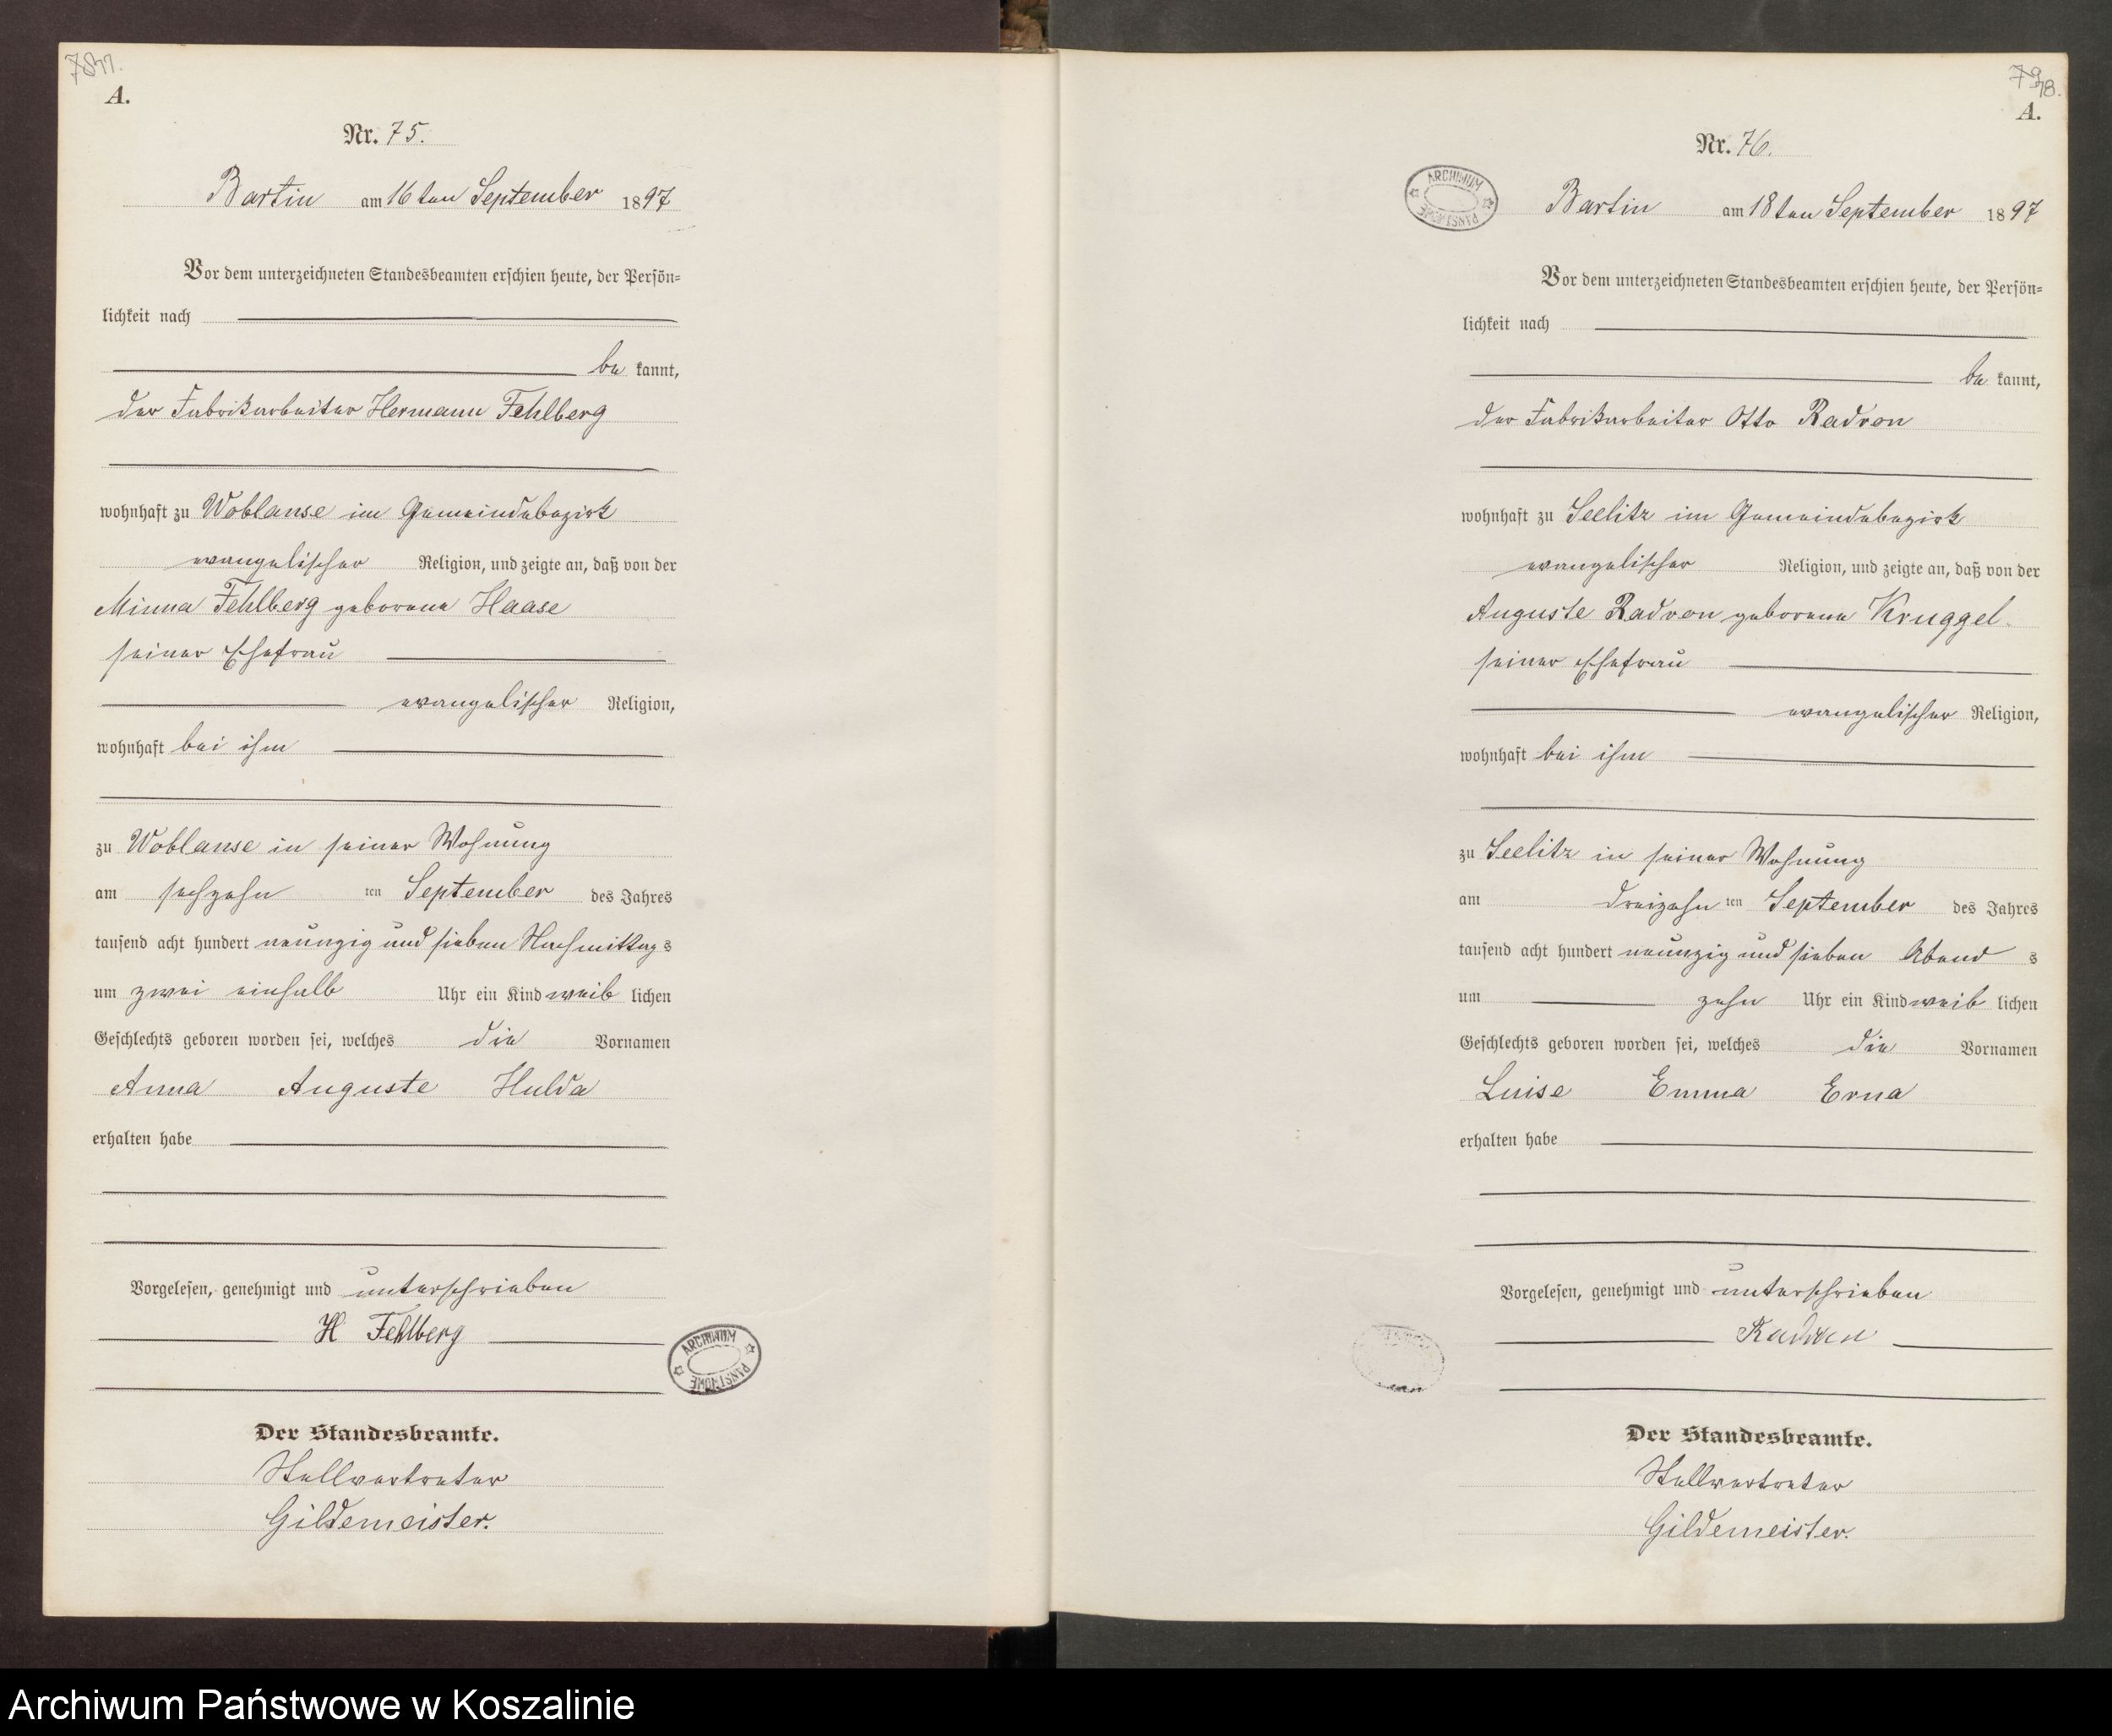 A.
Nr. 75.
Bartin am 16ten September 1897
Vor dem unterzeichneten Standesbeamten erschien heute, der Persön=
lichkeit nach
be kannt,
der Fabrikarbeiter Hermann Fehlberg
wohnhaft zu Woblanse im Gemeindebezirk
evangelischer Religion, und zeigte an, daß von der
Minna Fehlberg geborene Haase
seiner Ehefrau
evangelischer Religion,
wohnhaft bei ihm
zu Woblanse in seiner Wohnung
am sechzehn ten September des Jahres
tausend acht hundert neunzig und sieben Nachmittag s
um zwei einhalb Uhr ein Kind weib lichen
Geschlechts geboren worden sei, welches die Vornamen
Anna Auguste Hulda
erhalten habe
Vorgelesen, genehmigt und unterschrieben
H Fehlberg
ARCHIWUM PAŃSTWOWE
Der Standesbeamte.
Stellvertreter
Gildemeister.
A.
Nr. 76.
ARCHIWUM PAŃSTWOWE
Bartin am 18ten September 1897
Vor dem unterzeichneten Standesbeamten erschien heute, der Persön=
lichkeit nach
be kannt,
der Fabrikarbeiter Otto Radron
wohnhaft zu Seelitz im Gemeindebezirk
evangelischer Religion, und zeigte an, daß von der
Auguste Radron geborene Kruggel
seiner Ehefrau
evangelischer Religion,
wohnhaft bei ihm
zu Seelitz in seiner Wohnung
am dreizehn ten September des Jahres
tausend acht hundert neunzig und sieben Abend s
um zehn Uhr ein Kind weib lichen
Geschlechts geboren worden sei, welches die Vornamen
Luise Emma Erna
erhalten habe
Vorgelesen, genehmigt und unterschrieben
Der Standesbeamte.
Stellvertreter
Gildemeister.
Archiwum Państwowe w Koszalinie